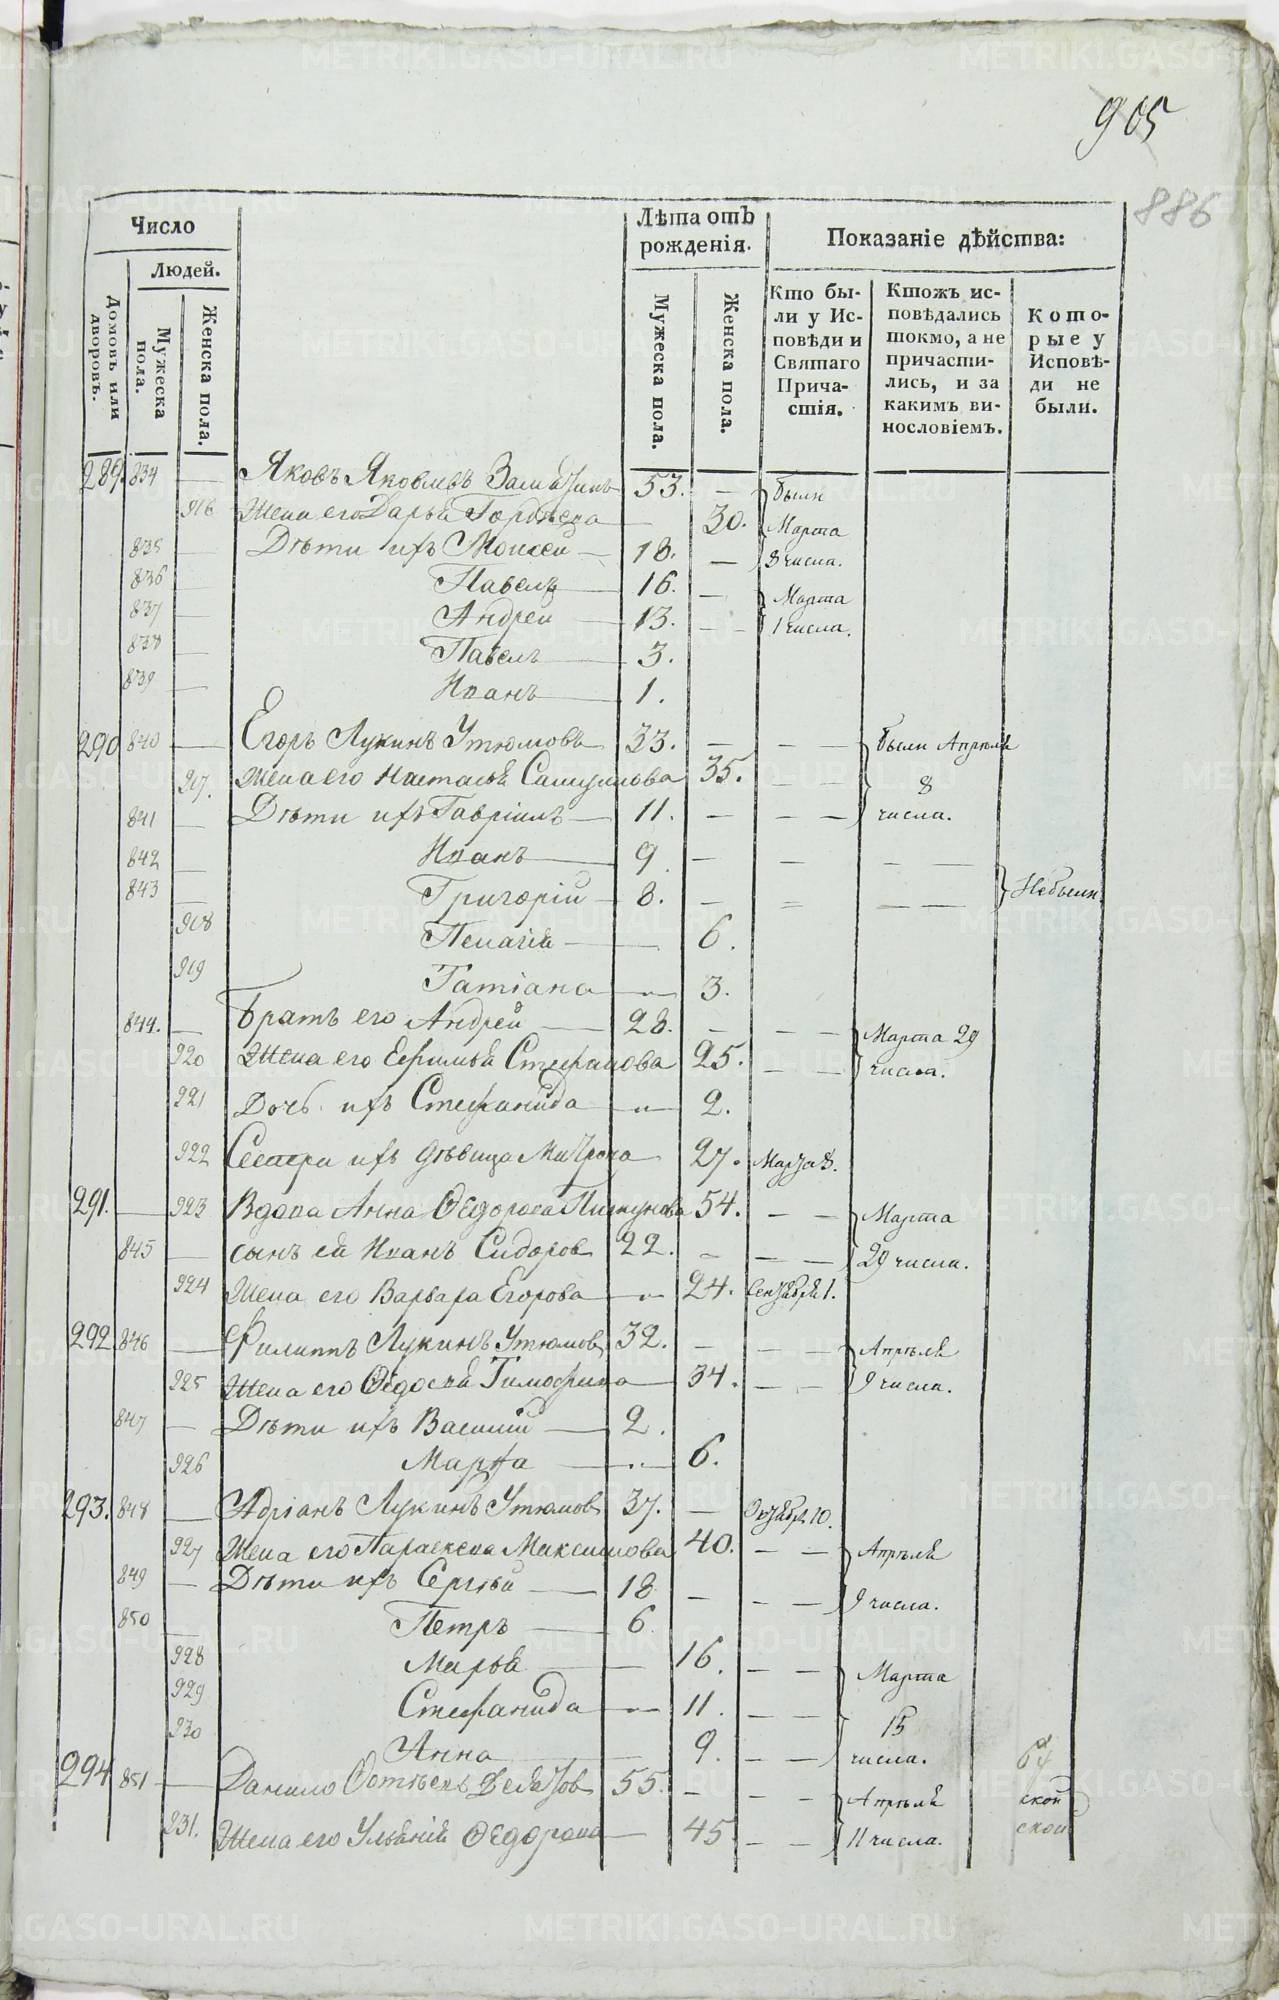 905
886
Число
Людей.
Домовъ или дворовъ.
Мужеска пола.
Женска пола.
Лѣта отъ рожденія.
Мужеска пола.
Женска пола.
Показаніе дѣйства:
Кто бы-
ли у Ис-
повѣди и
Святаго
Прича-
стія.
Ктожъ ис-
повѣдались
токмо, а не
причасти-
лись, и за
какимъ ви-
нословіемъ.
Кото-
рые у
Исповѣ-
ди не
были.
289. 834 — Яковъ Яковлевъ 53. — были
916 Жена его Дарья — 30. Марта
835 — Дѣти ихъ Моисей — 18. — 8 числа.
836 — Павелъ — 16. — Марта
837 — Андрей — 13. — — 1 числа.
838 — Павелъ — 3.
839 — Иванъ — 1.
290 840 — Егоръ Лукинъ Утюмовъ 33. — — — были Апрѣля
917. Жена его Настасья Самуилова 35. — — 8
841 — Дѣти ихъ Гавріилъ — 11. — — — числа.
842 — Иванъ — 9 — — — —
843 — Григорій — 8. — = — — Небыли
918 Пелагія — — 6.
919 Татіана — „ — 3.
844. — Братъ его Андрей — 28. — — — Марта 29
920 Жена его Ефимья Стефанова 25. — — числа.
921 Дочь ихъ Стефанида — „ — 2.
922 Сестра ихъ дѣвица Матрона 27. Марта 8.
291. — 923 Вдова Анна Ѳедорова Пичкунова 54. — — Марта
845 — сынъ ея Иванъ Сидоров 22. — — — 29 числа.
924 Жена его Варвара Егорова — „ — 24. Сентября 1.
292 846 — Филиппъ Лукинъ Утюмов 32. — — — Апрѣля
925 Жена его Ѳедосья Тимофѣева — 34. — — 9 числа.
847 — Дѣти ихъ Василий — 2.
926 Марѳа — „ — 6.
293. 848 — Адріанъ Лукинъ Утюмов 37. — Октября 10.
927 Жена его Параскева Максимова 40. — — Апрѣля
849 — Дѣти ихъ Сергѣй — 18 — — — 9 числа.
850 — Петръ — 6
928 Марья — — 16. — — Марта
929 Стефанида — „ — 11. — — 15
930 Анна — 9. — — числа.
294 851 — Данило 55. — — — Апрѣля
931. Жена его Ульянія Ѳедорова — 45 — — 11 числа.
ской
ской
METRIKI.GASO-URAL.RU